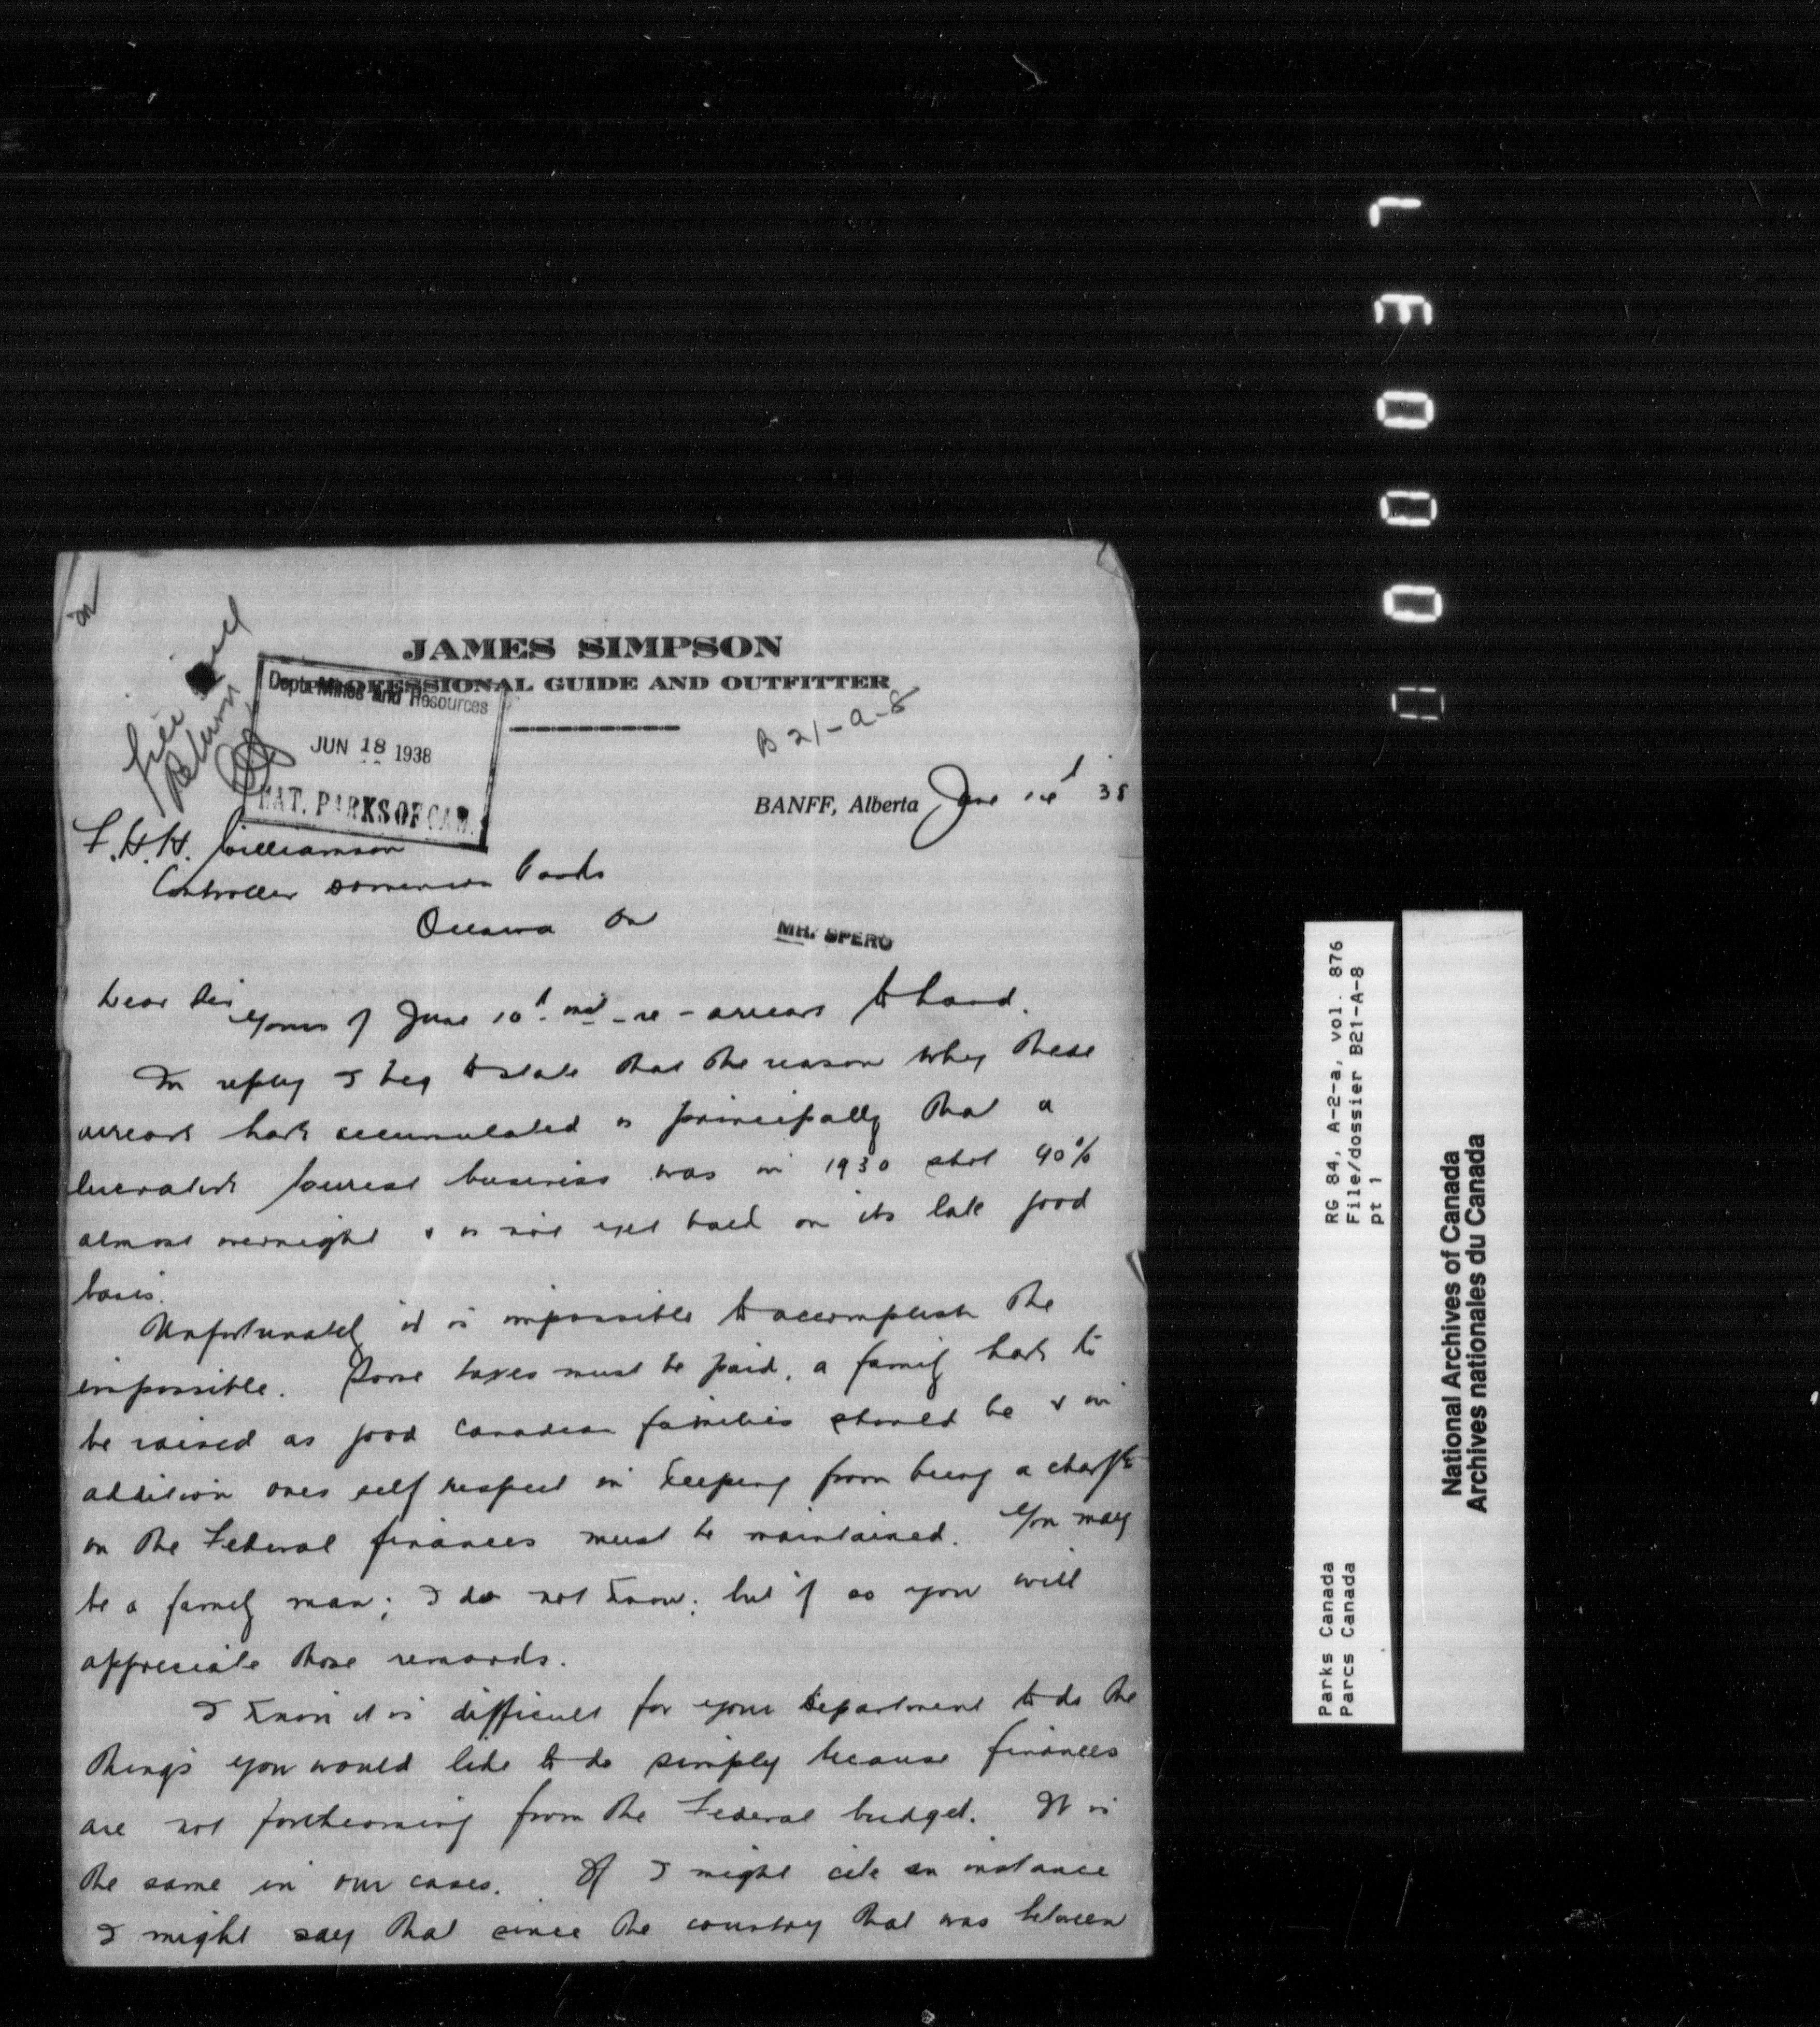 JAMES SIMPSON
PROFESSIONAL GUIDE AND OUTFITTER
Dept. Mines and Resources
JUN 18 1938
NAT. PARKS OF CAN.
file
Return
B 21-a-8
BANFF, Alberta June 14 38
F.H.H. Williamson
Controller Dominion Parks
Ottawa Ont
MR. SPERO
Dear Sir
Yours of June 10th inst - re - arrears to hand.
In reply I beg to state that the reason why these
arrears have accumulated is principally that a
lucrative tourist business was in 1930 shot 90%
almost overnight & is not yet back on its late good
basis.
Unfortunately it is impossible to accomplish the
impossible. Some taxes must be paid, a family has to
be raised as good Canadian families should be & in
addition ones self respect in keeping from being a charge
on the Federal finances must be maintained. You may
be a family man; I do not know; but if so you will
appreciate those remarks.
I know it is difficult for your Department to do the
things you would like to do simply because finances
are not forthcoming from the Federal budget. It is
the same in our cases. If I might cite an instance
I might say that since the country that was between
L E 0 0 0 0
RG 84, A-2-a, vol. 876
File/dossier B21-A-8
pt 1
Parks Canada
Parcs Canada
National Archives of Canada
Archives nationales du Canada